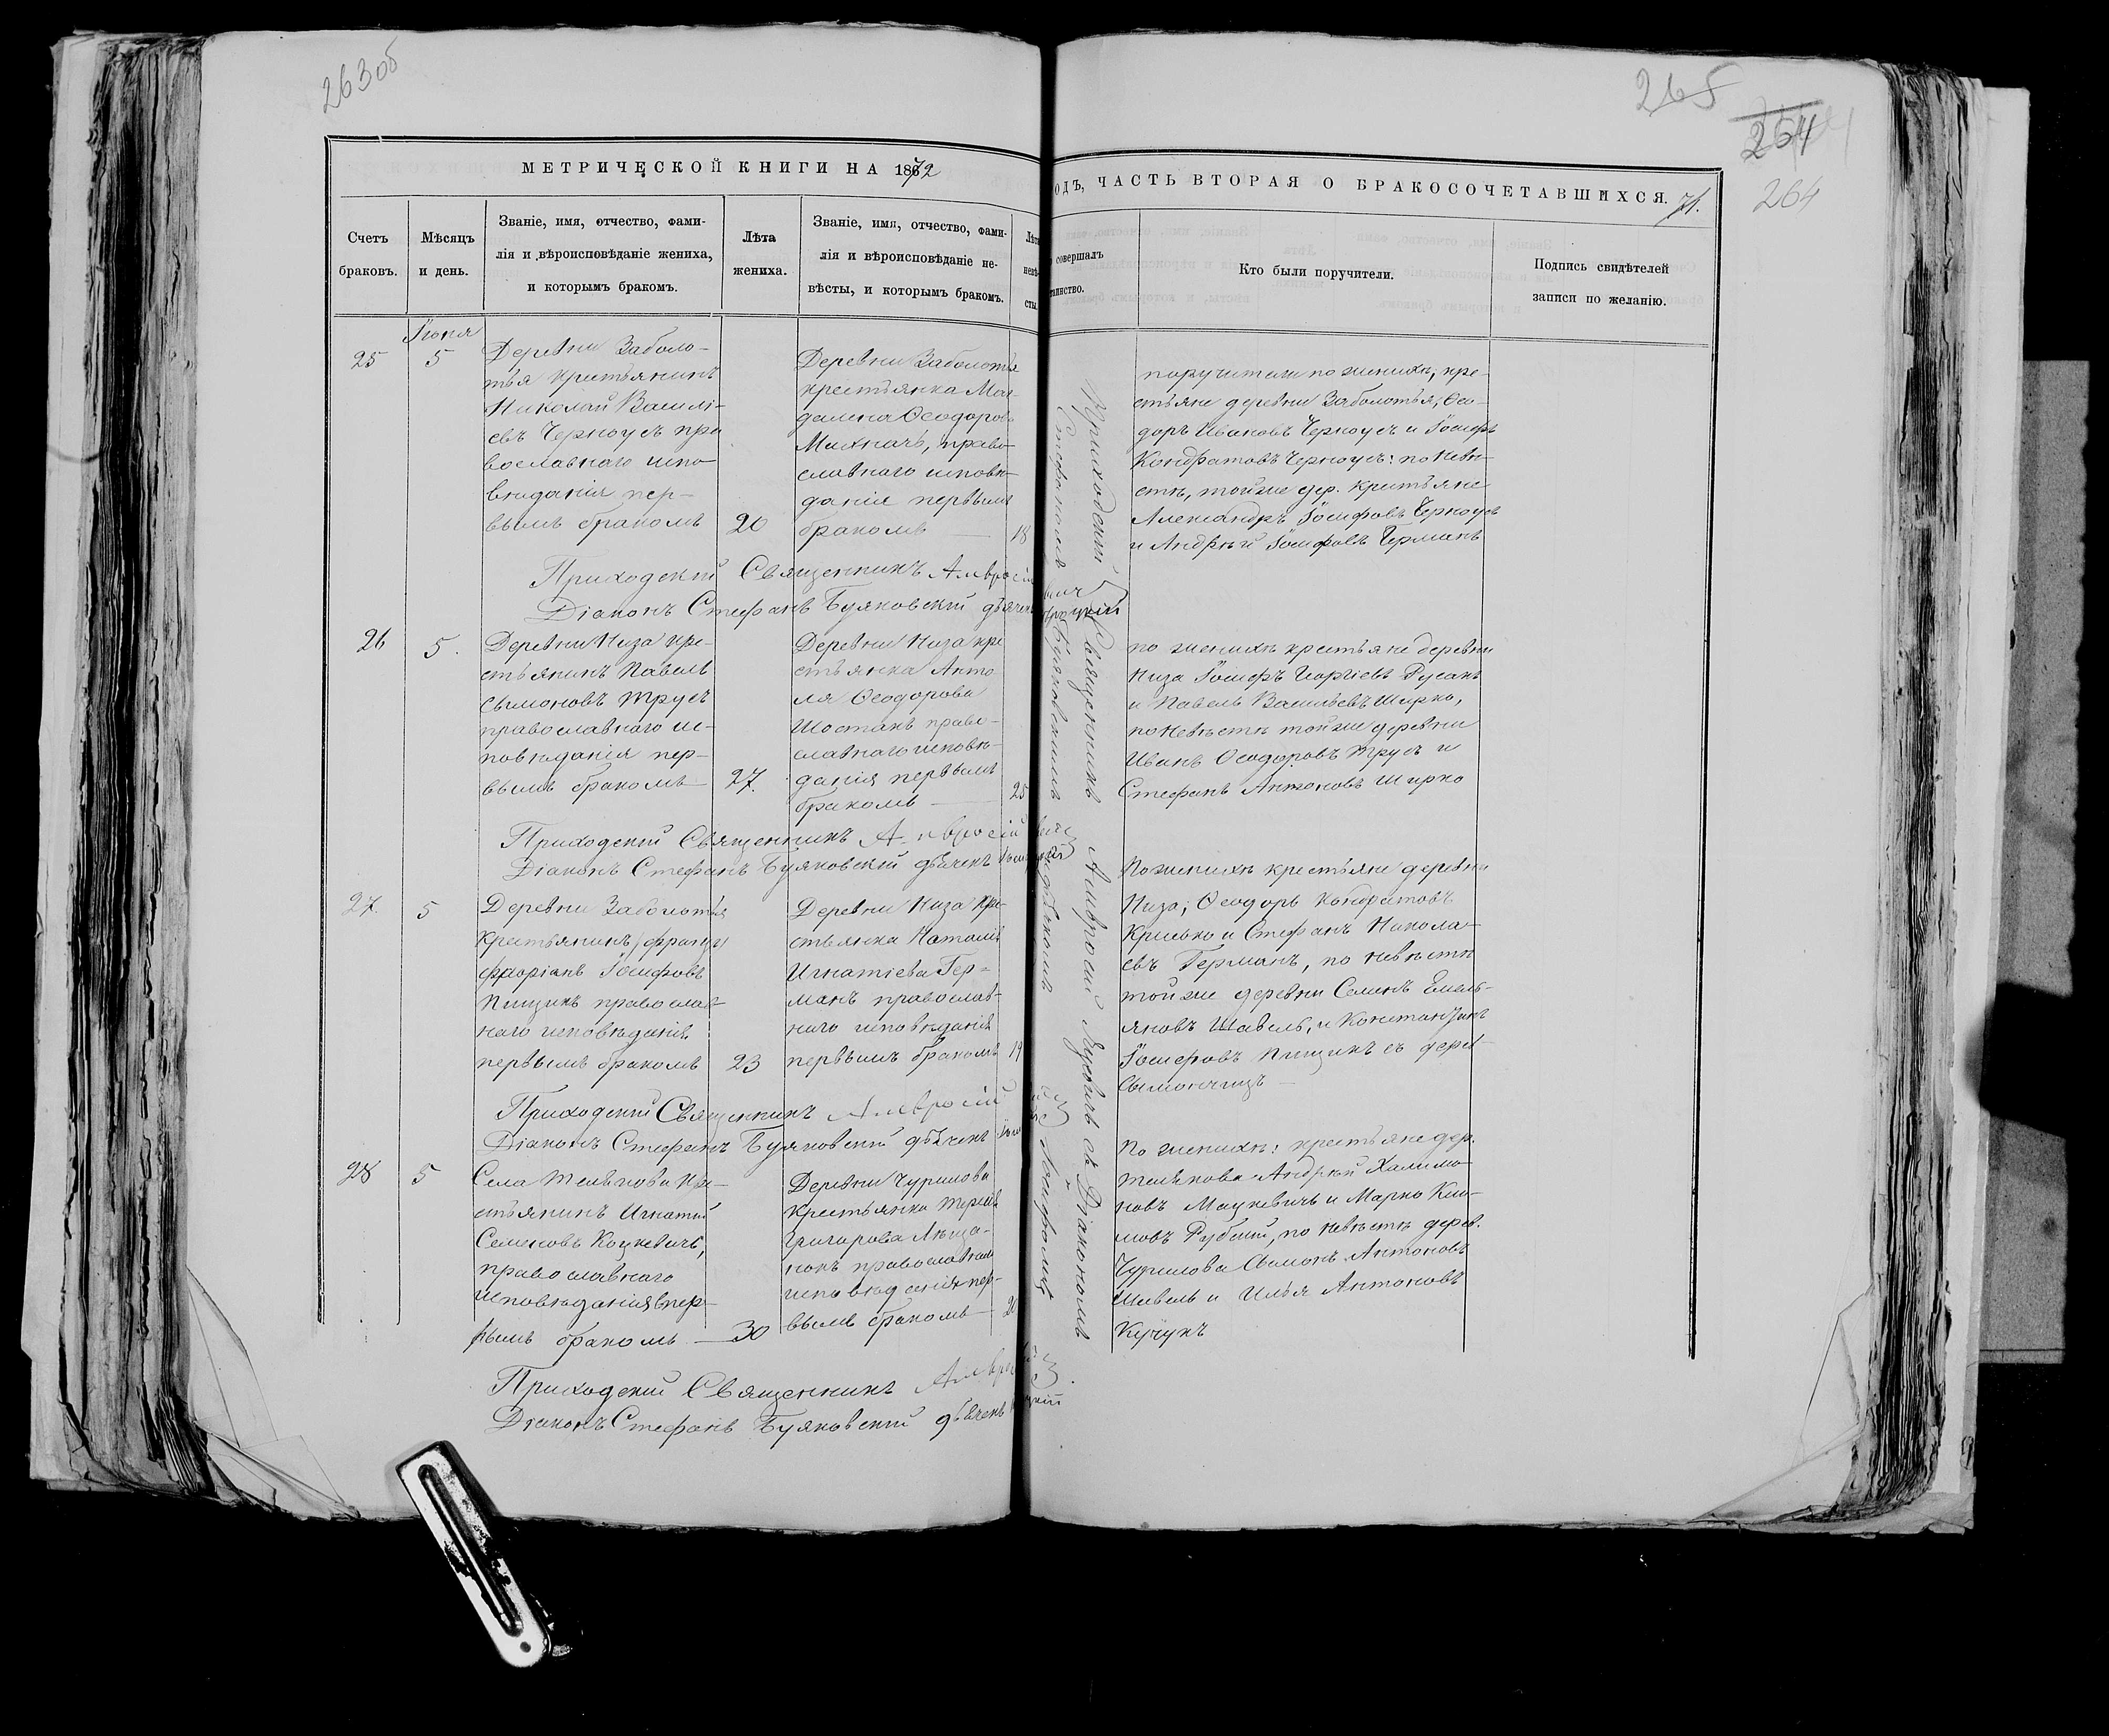 263об
265
254
264
МЕТРИЧЕСКОЙ КНИГИ НА 1872
ОДЪ, ЧАСТЬ ВТОРАЯ О БРАКОСОЧЕТАВШИХСЯ.
71.
Счетъ
браковъ.
Мѣсяцъ
и день.
Званіе, имя, отчество, фами-
лія и вѣроисповѣданіе жениха,
и которымъ бракомъ.
Лѣта
жениха.
Званіе, имя, отчество, фами-
лія и вѣроисповѣданіе не-
вѣсты, и которымъ бракомъ.
Лѣта
невѣ-
сты
совершалъ
таинство.
Кто были поручители.
Подпись свидѣтелей
записи по желанію.
Іюня
25
5
Деревни Заболо-
тья крестьянинъ
Николай Василі-
евъ Черноусъ пра
вославнаго испо-
вѣданія пер-
вымъ бракомъ
20
Деревни Заболотья
крестьянка Маг-
далена Ѳеодорова
православнаго исповѣ-
данія первымъ
бракомъ
18
поручители по женихѣ, кре-
стьяне деревни Заболотья, Ѳео-
доръ Ивановъ Черноусъ и Іосифъ
Кондратовъ Черноусъ: по невѣ-
стѣ, тойже дер. крестьяне
Александръ Іосифовъ Черноусъ
и Андрѣй Іосифовъ Германъ
Приходскій Священникъ Амвросій
Діаконъ Стефанъ Буяковскій дьячекъ
26
5.
Деревни Низа кре-
стьянинъ Павелъ
Сымоновъ Трусъ
православнаго ис-
повѣданія пер-
вымъ бракомъ
27.
Деревни Низа кре
стьянка Анто
ля Ѳеодорова
Шостакъ право-
славнаго исповѣ-
данія первымъ
бракомъ
25
по женихѣ крестьяне деревни
Низа Іосифъ Георгіевъ Русакъ
и Павелъ Васильевъ Ширко,
по невѣстѣ тойже деревни
Иванъ Ѳеодоровъ Трусъ и
Стефанъ Антоновъ Ширко
Приходскій Священникъ Амвросій
Діаконъ Стефанъ Буяковскій дьячекъ
27.
5
Деревни Заболотья
крестьянинъ
Флоріанъ Іосифовъ
Пищикъ православ-
наго исповѣданія
первымъ бракомъ
23
Деревни Низа кре-
стьянка Наталія
Игнатіева Гер-
манъ православ-
наго исповѣданія
первымъ бракомъ
19
По женихѣ крестьяне деревни
Низа, Ѳеодоръ Кондратовъ
и Стефанъ Никола-
евъ Германъ, по невѣстѣ
тойже деревни Семенъ Емель-
яновъ Шавель, и Константинъ
Іосифовъ Пищикъ съ дерев
Приходскій Священникъ Амвросій
Діаконъ Стефанъ Буяковскій дьячекъ
28
5
Села Теляково кре-
стьянинъ Игнатій
Семеновъ Коцкевичъ,
православнаго
исповѣданія пер-
вымъ бракомъ
30
Деревни Чурилова
крестьянка
Григорова
православнаго
исповѣданія пер-
вымъ бракомъ
По женихѣ: крестьяне дер.
Телякова Андрѣй Халимо-
новъ Мацкевичъ и Марко Кли-
мовъ по невѣстѣ дерев.
Чурилова Сымонъ Антоновъ
Шавель и Илья Антоновъ
Кучукъ
Приходскій Священникъ
Діаконъ Стефанъ Буяковскій дьячекъ
Приходскій Священникъ Амвросій съ Діакономъ
Стефаномъ Буяковскимъ